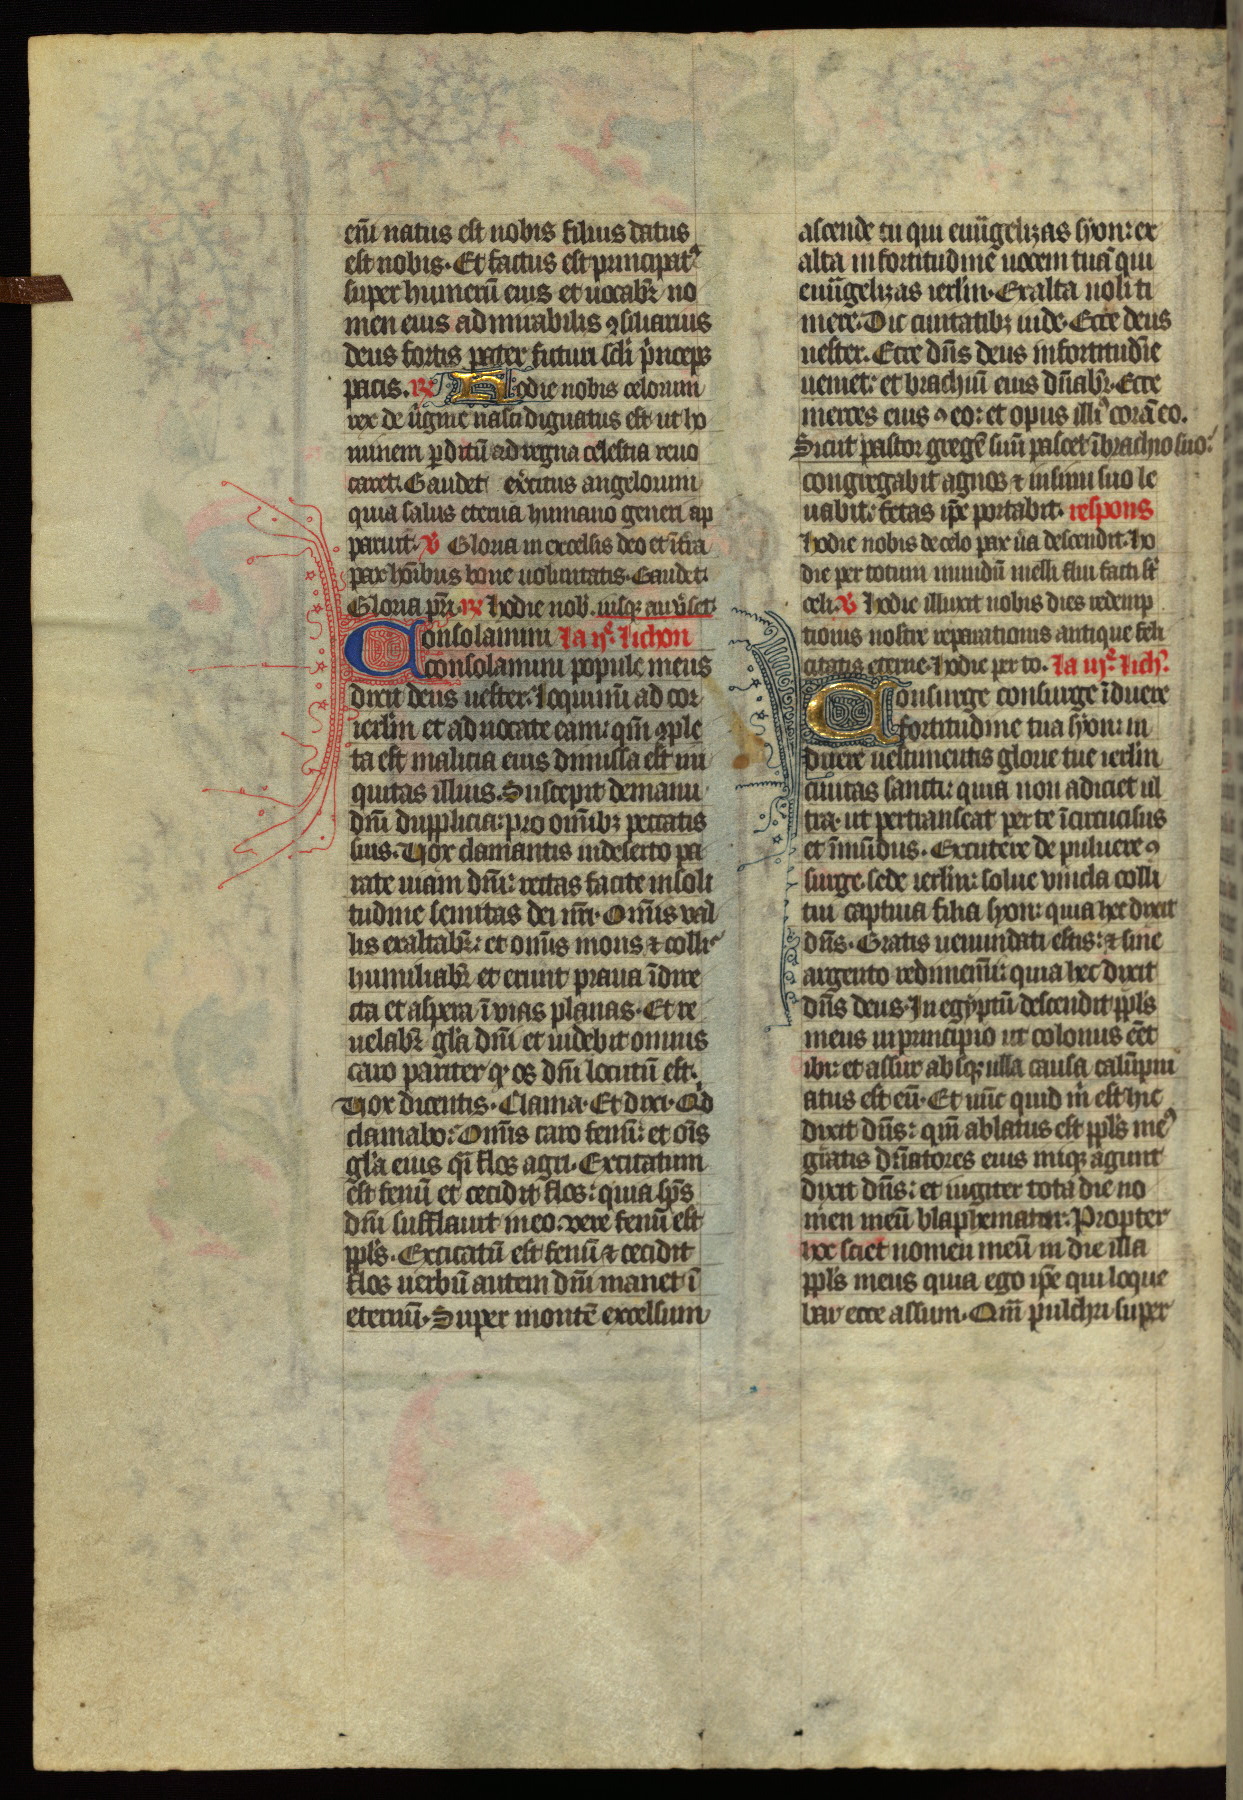 enī natus est nobis filius datus
est nobis. Et factus est principatꝰ
super humerū eius et uocabr̄ no
men eius admirabilis ꝯsiliarius
deus fortis pater futuri scl̄i pͥnceps
pacis. R̷ Hodie nobis celorum
rex de ūgine nasci dignatus est ut ho
minem ꝑditū ad regna celestia reuo
caret. Gaudet exͨitus angelorum
quia salus eterna humano generi ap
paruit. V̷ Gloria in excelsis deo et ī tͥra
pax hoībus bone uoluntatis. Gaudet.
Gloria pr̄i. R̷ Hodie nob̄.
Consolamini la ijᵃ. lichon
consolamini popule meus
dicit deus uester. Loquimī ad cor
ierl̄m et aduocate eam: qm̄ ꝯple
ta est malicia eius dimissa est ini
quitas illius. Suscepit de manu
dn̄i dupplicia: pro om̄ibꝫ peccatis
suis. Uox clamantis in deserto pa
rate uiam dn̄i: rectas facite in soli
tudine semitas dei nr̄i. Om̄is val
lis exaltabr̄: et om̄is mons ⁊ collisͨ
humiliabr̄ et erunt praua ī dire
cta et aspera ī vias planas. Et re
uelabr̄ gl̄a dn̄i et uidebit omnis
caro pariter qͥ os dn̄i locutū est.
Uox dicentis. Clama. Et dixi. Qͥd
clamabo: Om̄is caro fenū: et oīs
gl̄a eius qͣi flos agri. Exciccatum
est fenū et cecidit flos: quia sp̄s
dn̄i sufflauit in eo. vere fenū est
ppl̄s. Exciccatū est fenū ⁊ cecidit
flos uerbū autem dn̄i manet ī
eternū. Super montē excelsum
ascende tu qui euūgelizas syon: ex
alta in fortitudine uocem tuā qui
euūgelizas ierl̄m. Exalta noli ti
mere. Dic ciuitatibꝫ iude. Ecce deus
uester. Ecce dn̄s deus in fortitudīe
ueniet: et brachiū eius dn̄abr̄. Ecce
merces eius ꝯ eo: et opus illiꝰ corā eo.
Sicut pastor gregē suū pascet ī brachio suo:
congregabit agnos ⁊ in sinu suo le
uabit: fetas ip̄e portabit. respons
Hodie nobis de celo pax ūa descendit. Ho
die per totum mundū melliflui facti st̄
celi. V̷ Hodie illuxit nobis dies redemp
tionis nostre reparationis antique feli
citatis eterne. Hodie per to. la iijᵃ. lich̄.
Consurge consurge īduere
fortitudine tua syon: in
duere uestimentis glorie tue ierl̄m
ciuitas sancti: quia non adiciet ul
tra. ut pertranseat per te īcircūcisus
et īmūdus. Excutere de puluere ꝯ
surge. sede ierl̄m: solue vincla colli
tui captiua filia syon: quia hec dixit
dn̄s. Gratis uenundati estis: ⁊ sine
argento redimemī: quia hec dixit
dn̄s deus. In egyptū descendit ppl̄s
meus in principio ut colonus eēt
ibi: et assur absqꝫ ulla causa calūpni
atus est eū. Et nūc quid m̄ est hic
dixit dn̄s: qm̄ ablatus est ppl̄s meꝰ
gratis dn̄atores eius iniqꝫ agunt
dixit dn̄s: et iugiter tota die no
men meū blaphematur. Propter
hoc sciet nomen meū in die illa
ppl̄s meus quia ego ip̄e qui loque
bar ecce assum. Qm̄ pulchri super